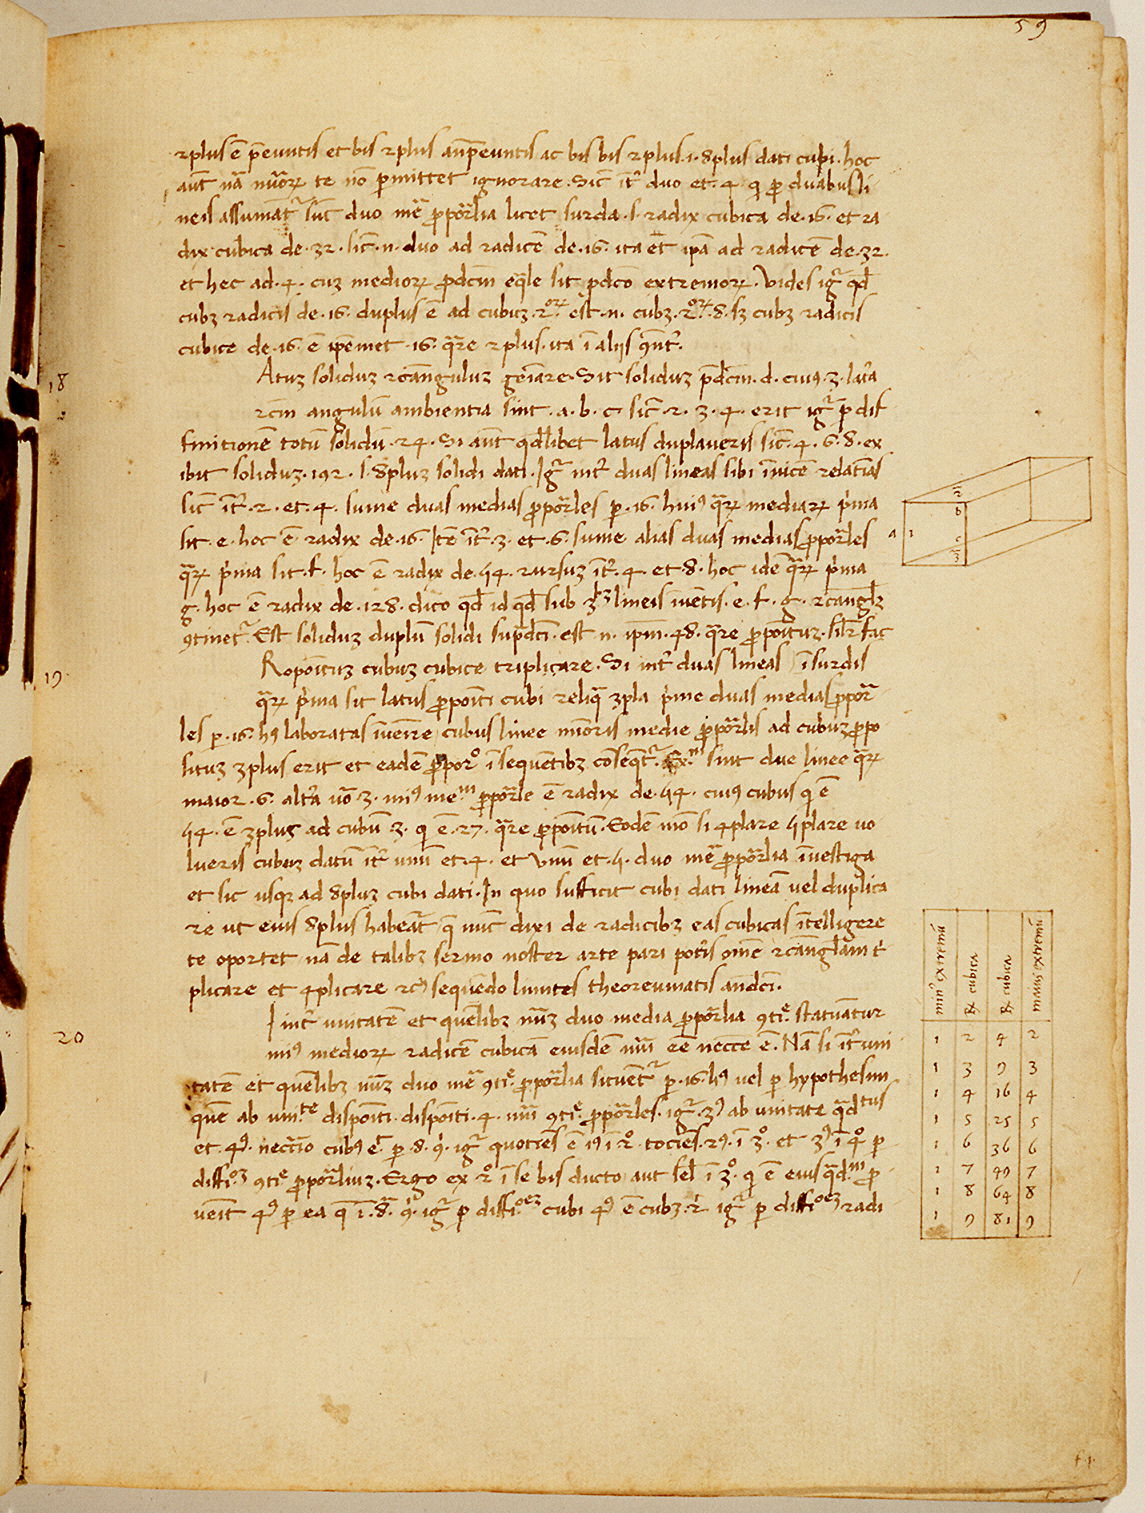 59
2plus ē p̄euntis et bis 2plus anp̄euntis ac bis bis 2plus .i. 8plus dati cubi. hoc
aūt nā nūoꝝ te nō p̱mittet ignorare. Sīc īt̄ duo et .4. q̇ ꝓ duabus li
neis assumāt̄ sūt duo mē ꝓpor̄lia licet surda .s. radix cubica de .16. et ra
dix cubica de .32. sīc .n. duo ad radicē de .16. ita et ipā ad radicē de .32.
et hec ad .4. cuz medioꝝ ꝓdcm̄ eq̄le sit ꝓdcō extremoꝝ. Vides igr̄ qđ
cubꝫ radicis de .16. duplus ē ad cubuz .2. est .n. cubꝫ .2. .8. sꝫ cubꝫ radicis
cubice de .16. ē ipemet .16. q̄re 2plus. ita ī aliis ꝯūnt̄.
18
Atuz soliduz rc̄anguluz geīare. Sit soliduz p̄dcm̄ .d. cuiꝰ .3. lat̄a
rcm̄ angulū ambientia sint .a. b. c. sīc .2. 3. 4. erit igr̄ ꝑ dif
finitionē totū solidū .24. Si aūt qđlibet latus duplaveris sīc .4. 6. 8. ex
ibit soliduz .192. s. 8pluz solidi dati. Igr̄ int̄ duas lineas sibi īnicē relatas
sīc īt̄ .2. et .4. sume duas medias ꝓpor̄les ꝑ .16. huiꝰ q̄ꝝ mediaꝝ p̄ma
sit .e. hoc ē radix de .16. Itē īt̄ .3. et .6. sume alias duas medias ꝓpor̄les
q̄ꝝ p̄ma sit .f. hoc ē radix de .54. rursuz īt̄ .4. et .8. hoc idē q̄ꝝ p̄ma
g. hoc ē radix de .128. dico qđ id qđ sub 3bꝫ lineis īuētis .e. f. g. rc̄angl̄z
ꝯtinet̄. Est soliduz duplū solidi sup̄dcī. est .n. ipm̄ .48. q̄re ꝓpoītuz. sil̄r fac
19
Ropoītuz cubuz cubice triplicare. Si int̄ duas lineas ī surdis
q̄ꝝ p̄ma sit latus ꝓpoīti cubi reliq̄ 3pla p̄me duas medias ꝓpor̄
les ꝑ .16. hꝰ laboratas īvenire cubus linee mīoris medie ꝓpor̄lis ad cubuz ꝓpo
situz 3plus erit et eadē ꝓpor° ī sequētibꝫ cōseqt̄. Ex.m sint due linee q̄ꝝ
maior .6. alt̄a vō .3. miꝰ me.m ꝓpor̄le ē radix de .54. cuiꝰ cubus q̇ ē
54. ē 3pluꝫ ad cubū .3. q̇ ē .27. q̄re ꝓpoītū. Eodē mō si 4plare 5plare vo
lueris cubuz datū īt̄ unū et .4. et vnū et .5. duo mē ꝓpor̄lia īvestiga
et sic usqꝫ ad 8pluz cubi dati. In quo sufficit cubi dati lineā vel duplica
re ut eius 8plus habeat̄ q̄ nūc dixi de radicibꝫ eas cubicas ītelligere
te oportet nā de talibꝫ sermo noster arte pari pot̄is om̄ē rc̄angl̄am t̄
plicare et 4plicare rcꝰ sequēdo limites theoreumatis an̄dcī.
20
I int̄ unitatē et quēlibꝫ nūz duo media ꝓpor̄lia ꝯtīe. statuātur
miꝰ medioꝝ radicē cubicā eiusdē nūi eē necce ē. Nā si īt̄ uni
tatē et quēlibꝫ nūz duo mē ꝯtīe. ꝓpor̄lia situēt̄ ꝑ .16. hꝰ vel ꝑ hypothesim
quē ab uni.te dispoīti. dispoīti .4. nūi ꝯtīe. ꝓpor̄les. igr̄ .3ꝰ ab unitate q̄dtus
et .4ꝰ. nectio cubꝰ ē ꝑ .8. 9. igr̄ quotiēs ē iꝰ ī 2°. tociēs .2ꝰ. ī 3°. et 3ꝰ ī 4°. ꝑ
diffi.oꝫ ꝯtīe ꝓpor̄liuz. Ergo ex 2° ī se bis ducto aut sel̄ ī 3°. q̇ ē eius q̄d.m ꝓ
venīt 4ꝰ ꝑ ea q̄ ī .8. 9. igr̄ ꝑ diffi.oeꝫ cubi 4ꝰ ē cubꝫ .2. igr̄ ꝑ diffi.oeꝫ radi
a 1
2
b
c
3
minꝰ extremū | ℞ cubica | ℞ cubica | maius extremū
1 2 4 2
1 3 9 3
1 4 16 4
1 5 25 5
1 6 36 6
1 7 49 7
1 8 64 8
1 9 81 9
f 1